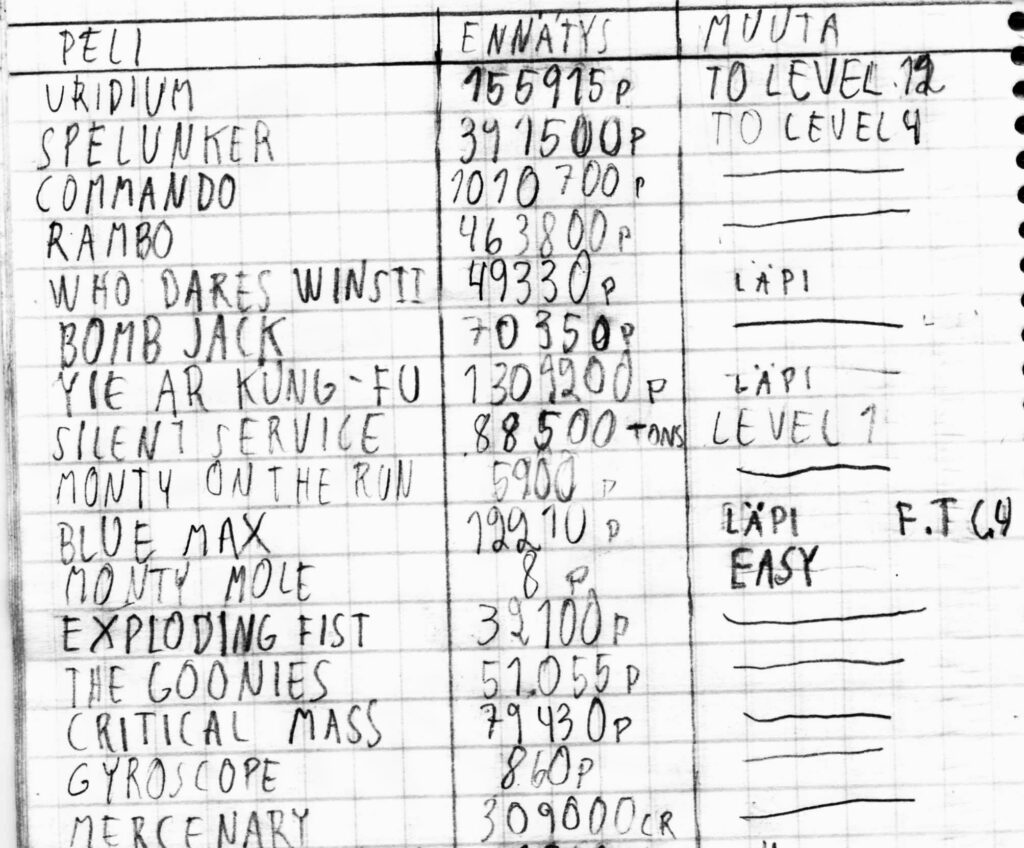 PELI ENNÄTYS MUUTA
URIDIUM 155915 P TO LEVEL 12
SPELUNKER 391500P TO LEVEL 4
COMMANDO 1010700 P
RAMBO 463800 P
WHO DARES WINS II 49330 P LÄPI
BOMB JACK 70350P
YIE AR KUNG-FU 1309200 P LÄPI
SILENT SERVICE 88500 TONS LEVEL 1
MONTY ON THE RUN 5900 P
BLUE MAX 12210 P LÄPI F.T C.4
MONTY MOLE 8 P EASY
EXPLODING FIST 32100 P
THE GOONIES 51.055 P
CRITICAL MASS 79430P
GYROSCOPE 860P
MERCENARY 309000CR